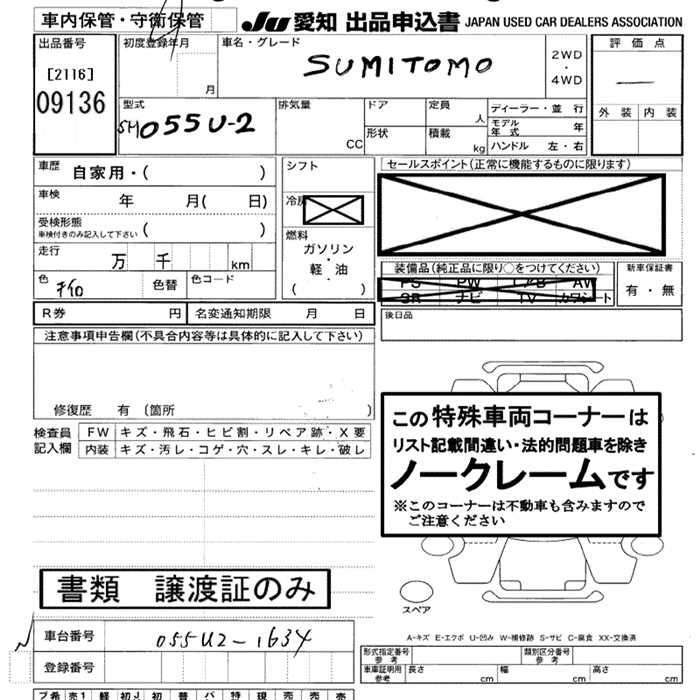 車内保管・守衛保管
JU 愛知 出品申込書 JAPAN USED CAR DEALERS ASSOCIATION
出品番号
[2116]
09136
初度登録年月
月
車名・グレード
SUMITOMO
2WD
・
4WD
評価点
外装 内装
型式
SH055U-2
排気量
CC
ドア
形状
定員
人
積載
kg
ディーラー・並行
モデル年式 年
ハンドル 左・右
車歴
自家用・( )
車検 年 月( 日)
受検形態
車検付きのみ記入して下さい ( )
走行 万 千 km
色 色替 色コード
シフト
冷房
燃料
ガソリン
・
軽・油
( )
セールスポイント(正常に機能するものに限ります)
装備品(純正品に限り○をつけてください)
PS PW AW
SR ナビ TV カワシート
新車保証書
有・無
R券 円 名変通知期限 月 日
後日品
注意事項申告欄(不具合内容等は具体的に記入して下さい)
修復歴 有 〔箇所 〕
検査員
記入欄
FW キズ・飛石・ヒビ割・リペア跡・X要
内装 キズ・汚レ・コゲ・穴・スレ・キレ・破レ
この特殊車両コーナーは
リスト記載間違い・法的問題車を除き
ノークレームです
※このコーナーは不動車も含みますので
ご注意ください
書類 譲渡証のみ
スペア
車台番号 055U2-1634
登録番号
A-キズ E-エクボ U-凹み W-補修跡 S-サビ C-腐食 XX-交換済
形式指定番号
参考
類別区分番号
参考
車車証明用
参考
長さ cm 幅 cm 高さ cm